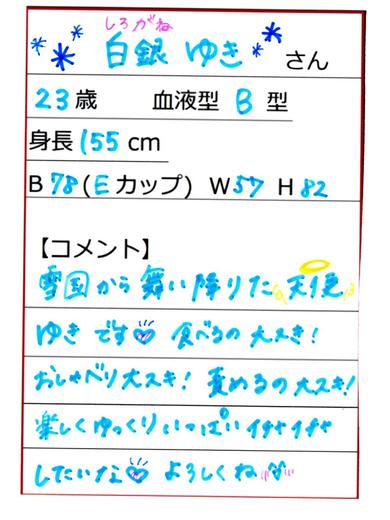 しろがね
白銀 ゆき さん
23歳 血液型 B 型
身長 155 cm
B 78 (E カップ) W 57 H 82
【コメント】
雪国から舞い降りた天使
ゆきです♡ 食べるの大スき!
おしゃべり大スキ! 責めるの大スキ!
楽しくゆっくりいっぱいイチャイチャ
したいな♡ よろしくね